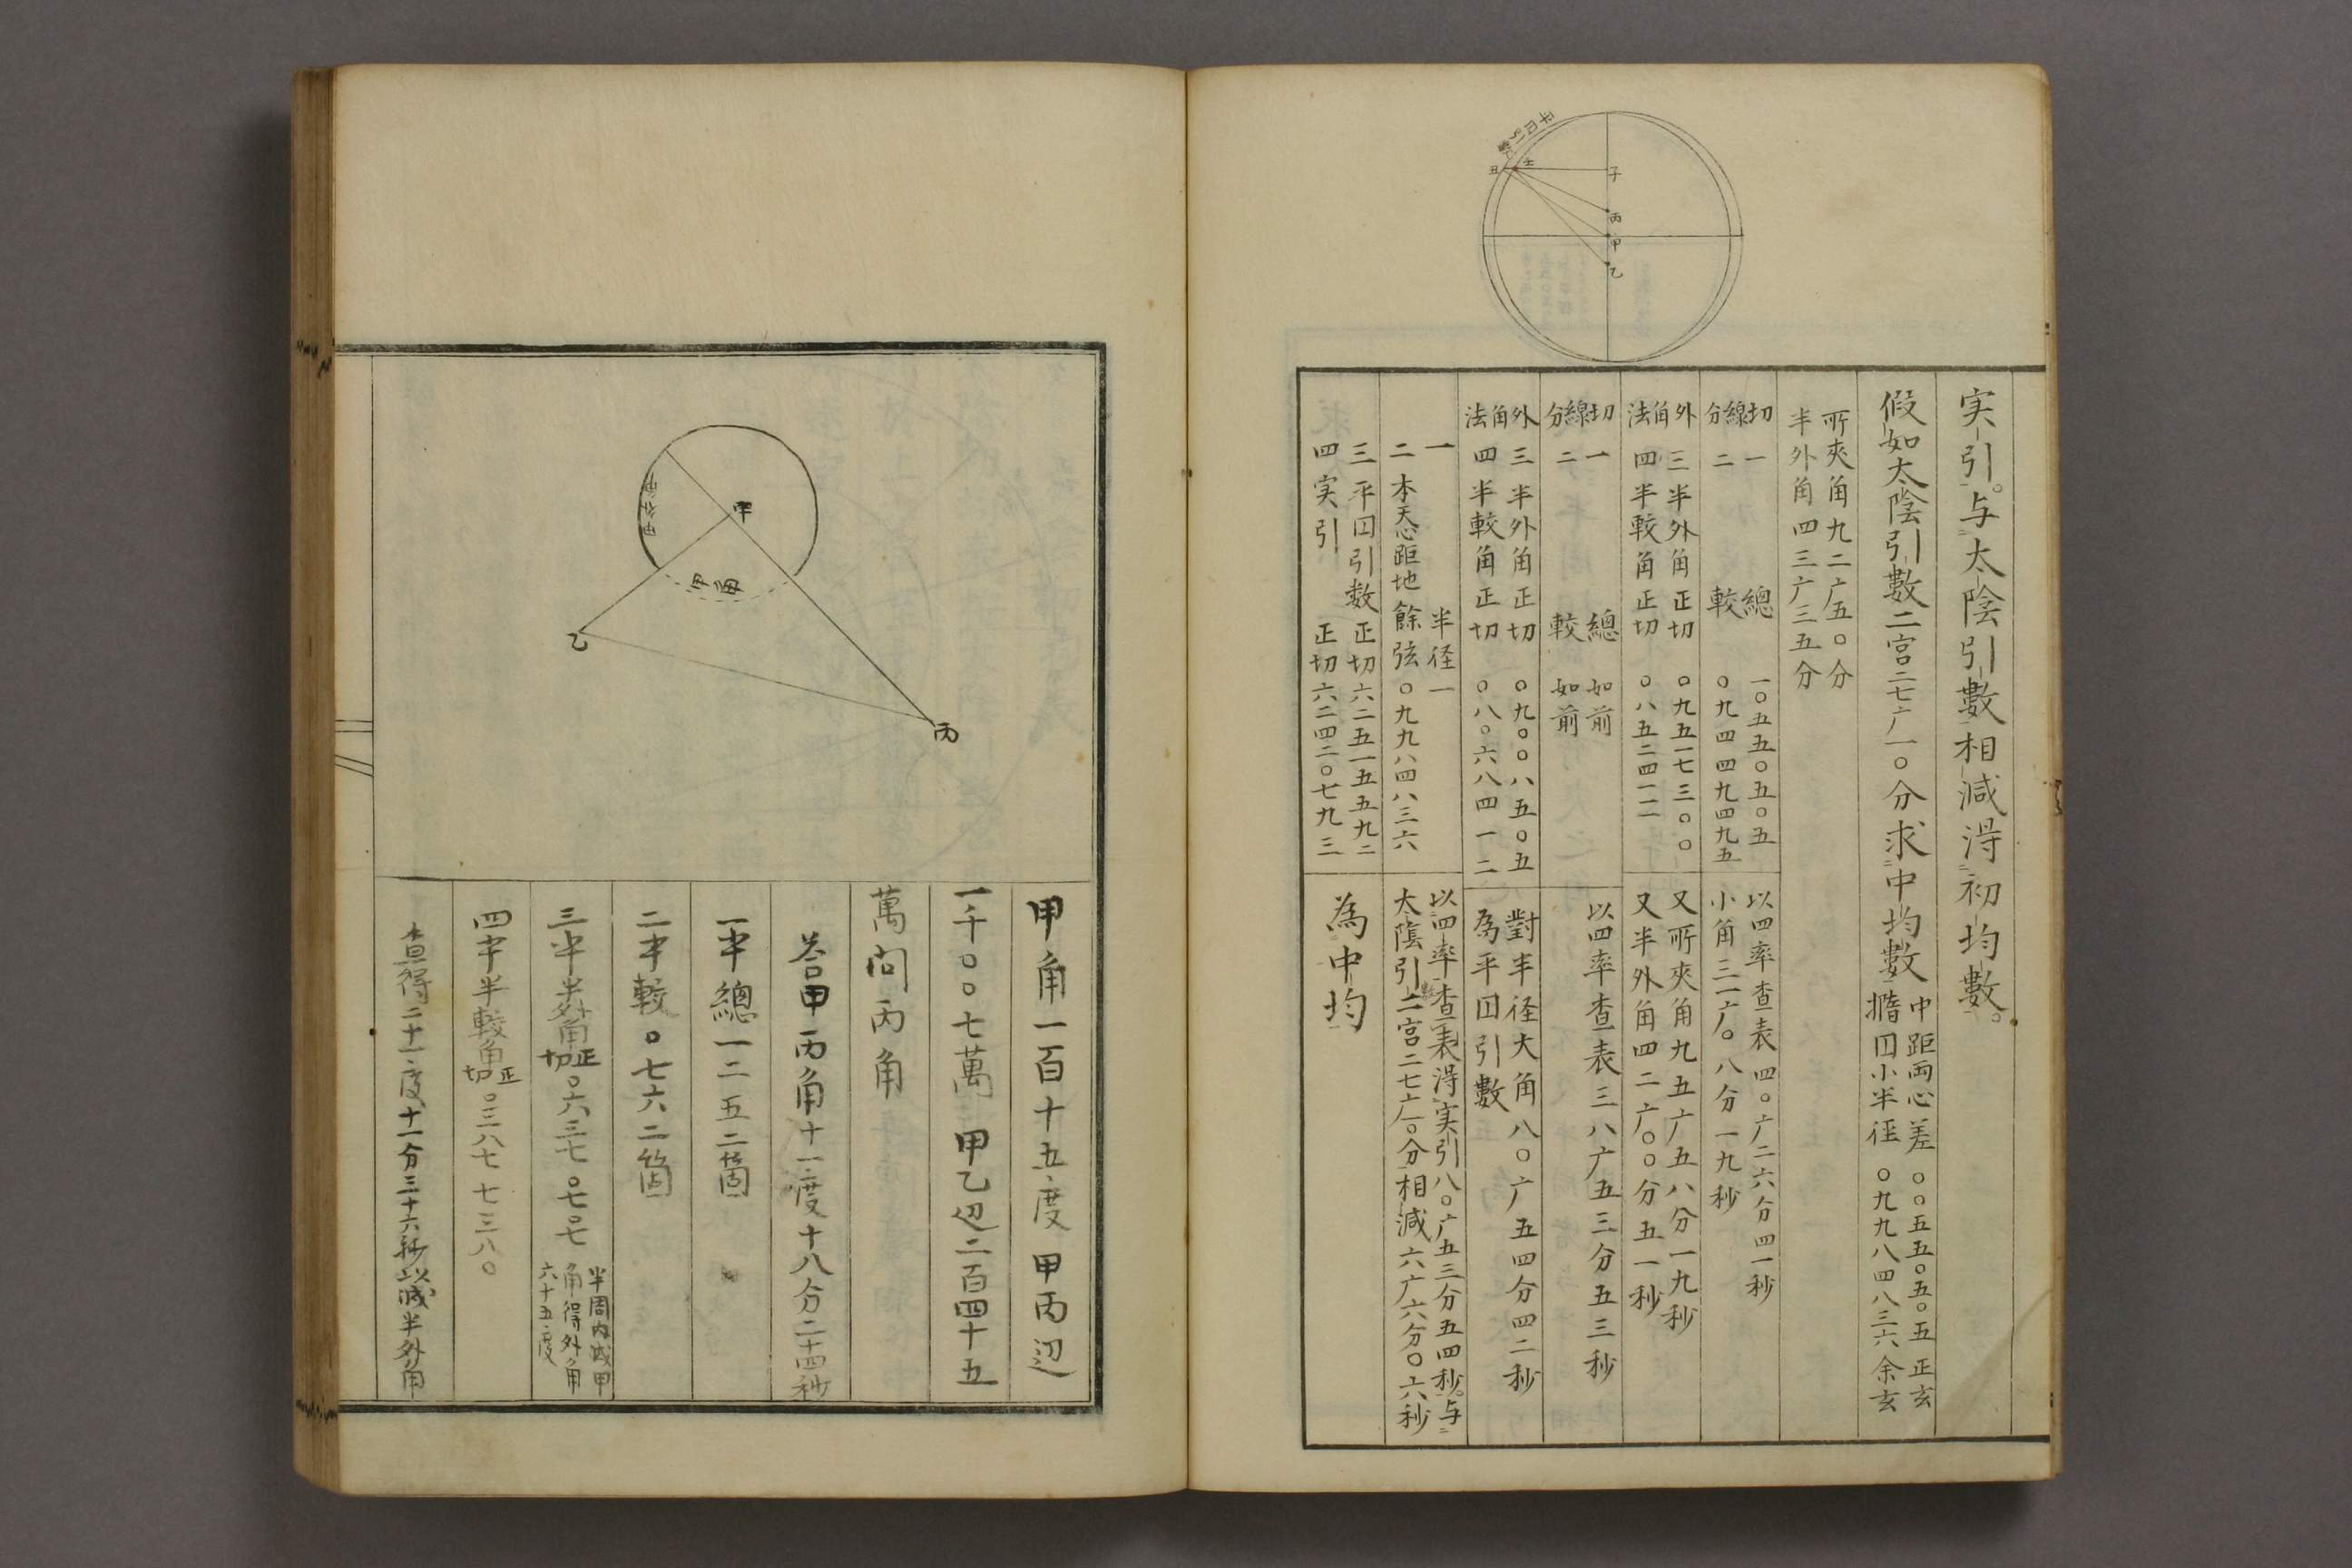 実引。与太陰引數相減得初均數。
假如太陰引數二宮二七广一〇分求中均數
中距両心差 〇〇五五〇五〇五 正玄
擔囗小半径 〇九九八四八三六 余玄
所夾角九二广五〇分
半外角四三广三五分
切線分
一 總 一〇五五〇五〇五
二 較 〇九四四九四九五
以四率查表四〇广二六分四一秒
小角三一广〇八分一九秒
外角法
三半外角正切 〇九五一七三〇〇
四半較角正切 〇八五二四一二
又所夾角九五广五八分一九秒
又半外角四二广〇〇分五一秒
切線分
一 總 如前
二 較 如前
以四率查表三八广五三分五三秒
外角法
三半外角正切 〇九〇〇八五〇五
四半較角正切 〇八〇六八四一二
對半径大角八〇广五四分四二秒
為平囗引數
一 半径一
二 本天心距地餘弦〇九九八四八三六
以四率查表得実引八〇广五三分五四秒。与
太陰引數二宮二七广一〇分相減六广六分〇六秒
三平囗引数正切六二五一五五九二
四実引 正切六二四二〇七九三
為中均
平囗引數
丑
士
子
丙
甲
乙
甲
乙
丙
甲角一百十五度甲丙辺
一千〇〇七萬 甲乙辺二百四十五
萬問丙角
答曰甲丙角十一度十八分二十四秒
一率總一二五二箇
二率較〇七六二箇
三率半外角正切〇六三七〇七七
半周内減甲
角得外角
六十五度
四率半較角正切〇三八七七三八〇
查得二十一度十一分三十六秒以減半外角